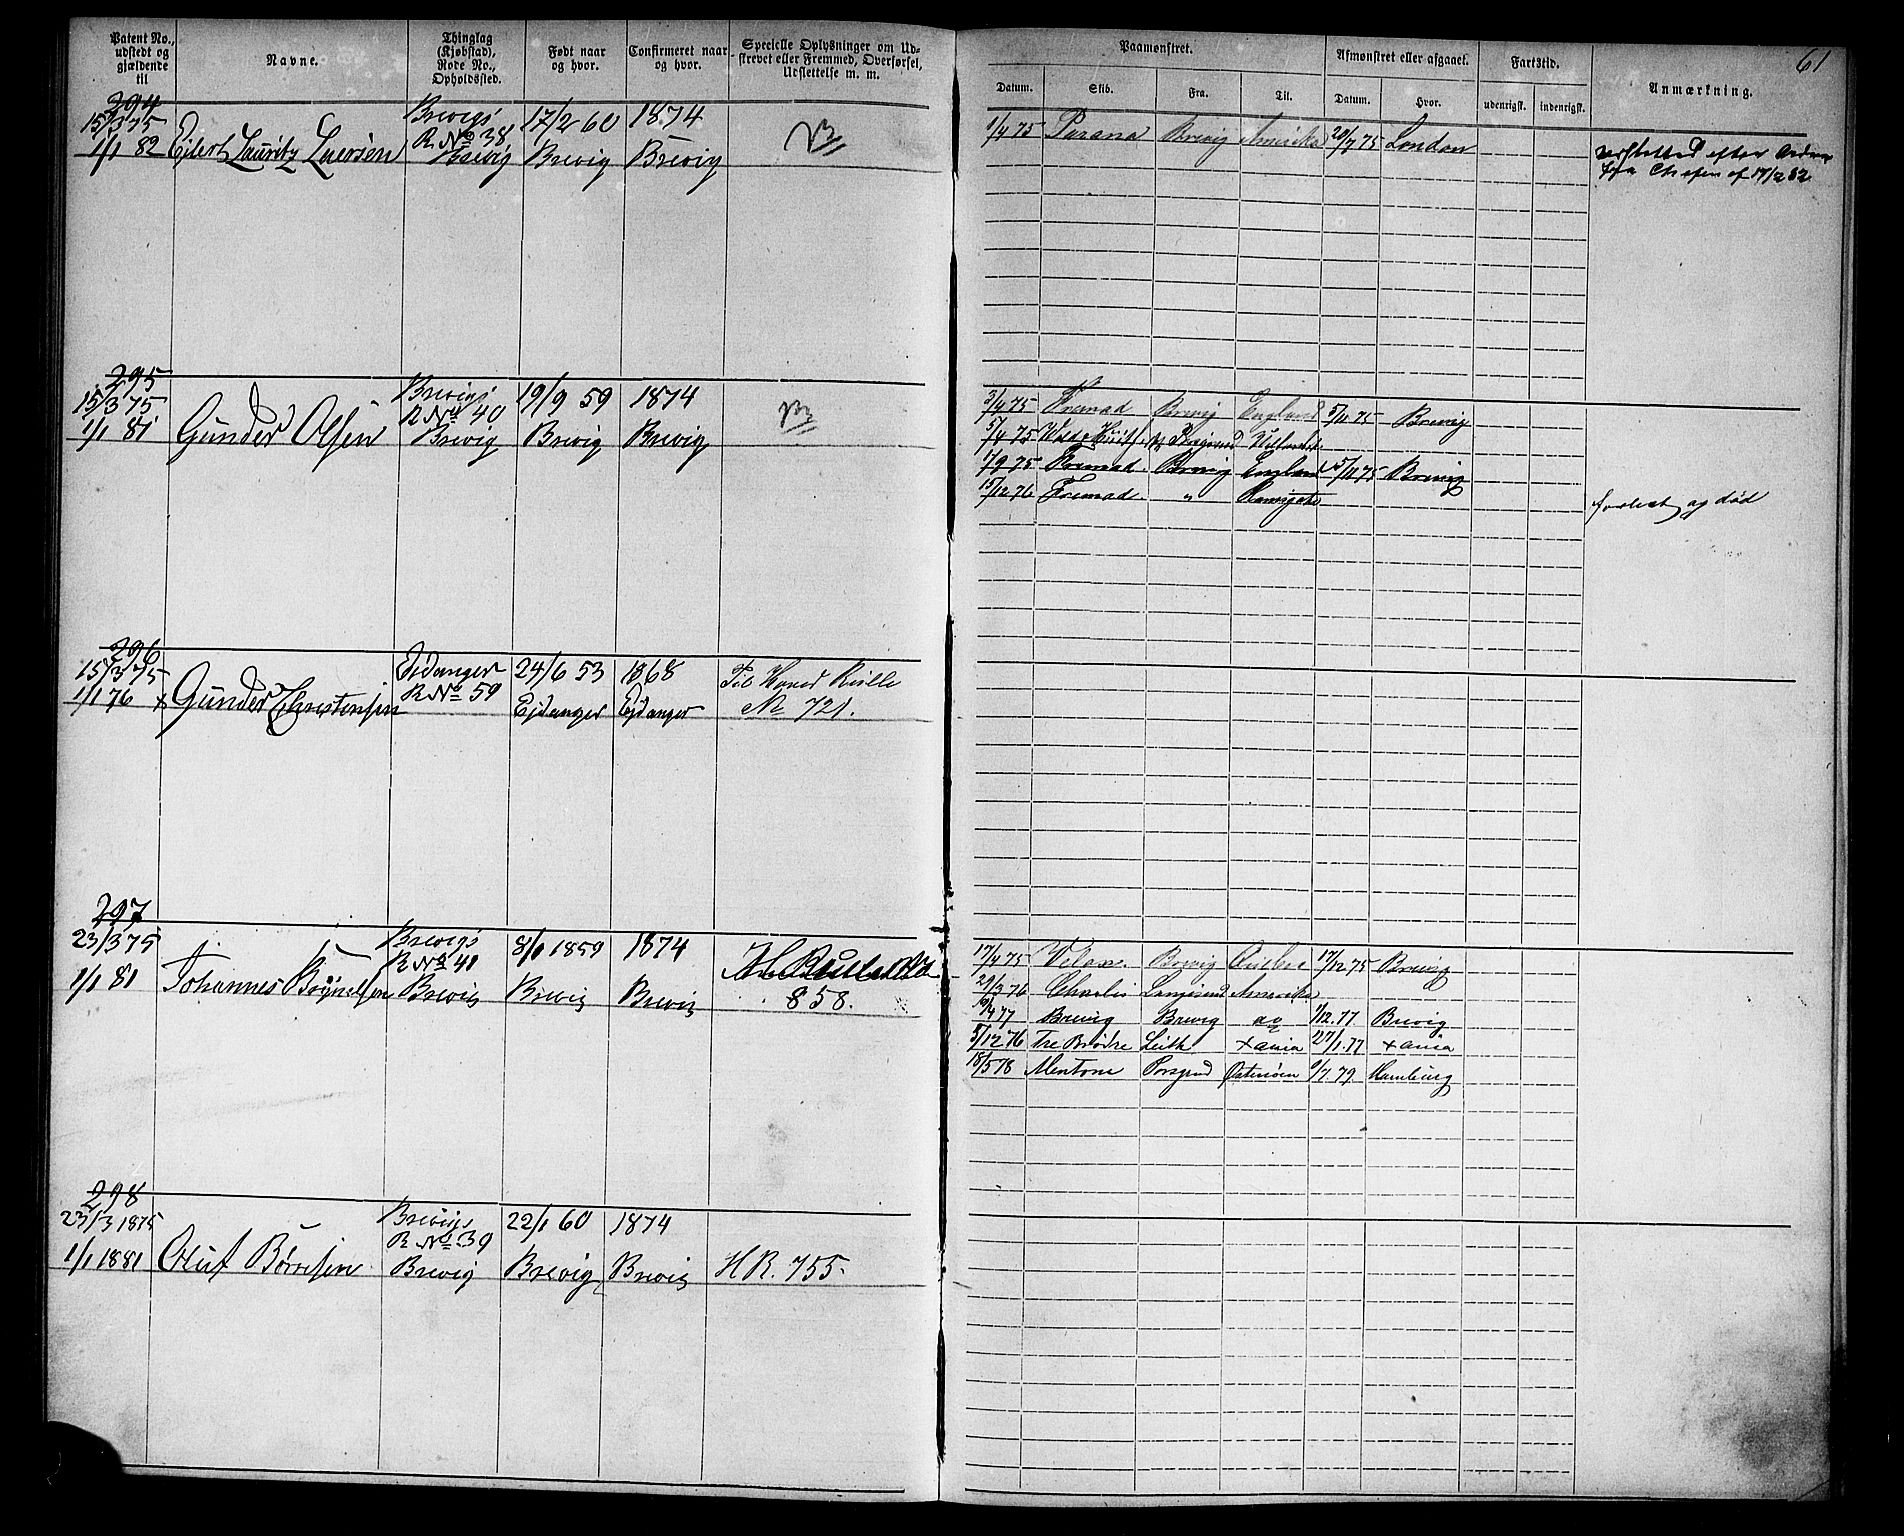 61
Patent No., udstedt og gjældende til
Navne.
Thinglag (Kjøbstad), Rode No., Opholdssted.
Født naar og hvor.
Confirmeret naar og hvor.
Specielle Oplysninger om Udskrevet eller Fremmed, Overførsel, Udslettelse m. m.
Paamønstret.
Afmønstret eller afgaaet.
Fartstid.
Anmærkning.
Datum.
Skib.
Fra.
Til.
Datum.
Hvor.
udenrigsk.
indenrigsk.
294
15/3 75 Brevigs 17/2 60 1874
R No 38
1/1 82 Ejlert Lauritz Larsen Brevig Brevig Brevig
1/4 75 Parana Brevig Amerika 20/7 75 London
udsletted efter Ordre
fra Chefen af 17/2 82
295
15/3 75 Brevigs 19/9 59 1874
R No 40
1/1 81 Gunder Olsen Brevig Brevig Brevig
3/4 75 Fremad Brevig England 5/11 75 Brevig
5/4 75 Porsgrund
1/9 75 Fremad Brevig England 5/11 75 Brevig
15/12 76 Fremad " Ramsgate
forlist og død
296
15/3 75 Eidanger 24/6 53 1868 Til Hoved Rulle
1/1 76 x Gunder Christensen R No 59 Ejdanger Ejdanger No 721.
297
23/3 75 Brevigs 8/1 1859 1874
R No 41
1/1 81 Johannes Brevig Brevig Brevig 858.
17/4 75 Brevig Quebec 17/12 75 Brevig
29/3 76 Charlis Langesund Amerika
4 77 Brevig Brevig 1/12 77 Brevig
5/12 76 Tre Brødre Leith Xania 27/1 77 Xania
18/5 78 Mentone Porsgrnd Østersøen 1/7 79 Hamburg
298
23/3 1875 Brevigs 22/1 60 1874
R No 39
1/1 1881 Oluf Børresen Brevig Brevig Brevig H R. 755.